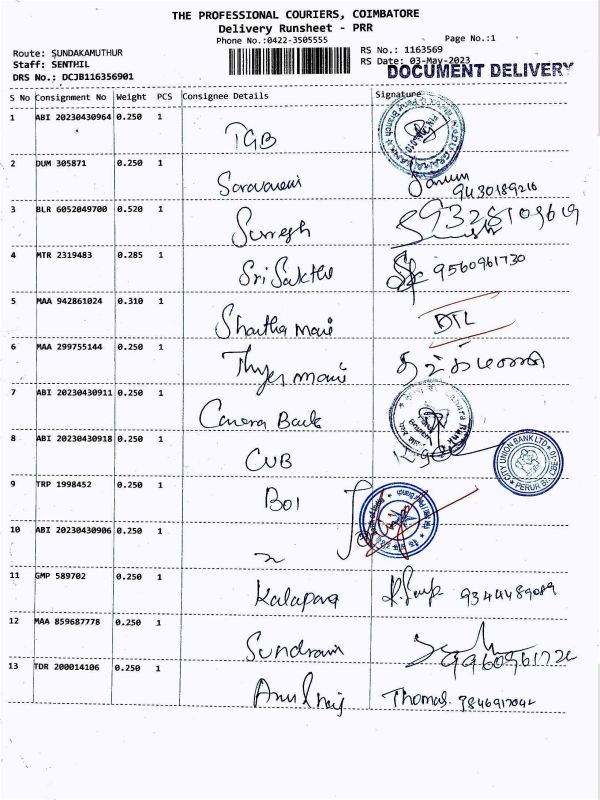 THE PROFESSIONAL COURIERS, COIMBATORE
Delivery Runsheet - PRR
Phone No.:0422-3505555
Page No.:1
Route: SUNDAKAMUTHUR
RS No.: 1163569
Staff: SENTHIL
RS Date: 03-May-2023
DRS No.: DCJB116356901
DOCUMENT DELIVERY
S No Consignment No Weight PCS Consignee Details Signature
1 ABI 20230430964 0.250 1 TGB
2 DUM 305871 0.250 1 9430189216
3 BLR 6052049700 0.520 1 Surresh
4 MTR 2319483 0.285 1 Sri Sakthi 9560961730
5 MAA 942861024 0.310 1 BTL
6 MAA 299755144 0.250 1
7 ABI 20230430911 0.250 1 Canara Bank
8 ABI 20230430918 0.250 1 CUB
CITY UNION BANK LTD
9 TRP 1998452 0.250 1 BOI
10 ABI 20230430906 0.250 1
11 GMP 589702 0.250 1 9344489089
12 MAA 859687778 0.250 1 Sundram
13 TDR 200014106 0.250 1 Thomas 9846917042